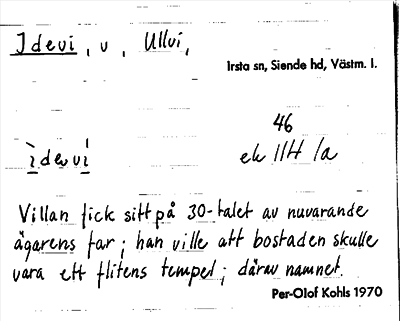 Idevi, v, Ullvi,
Irsta sn, Siende hd, Västm. l.
ìdevu̇̀
46
ek 11H 1a
Villan fick sitt på 30-talet av nuvarande
ägarens far; han ville att bostaden skulle
vara ett flitens tempel; därav namnet.
Per-Olof Kohls 1970